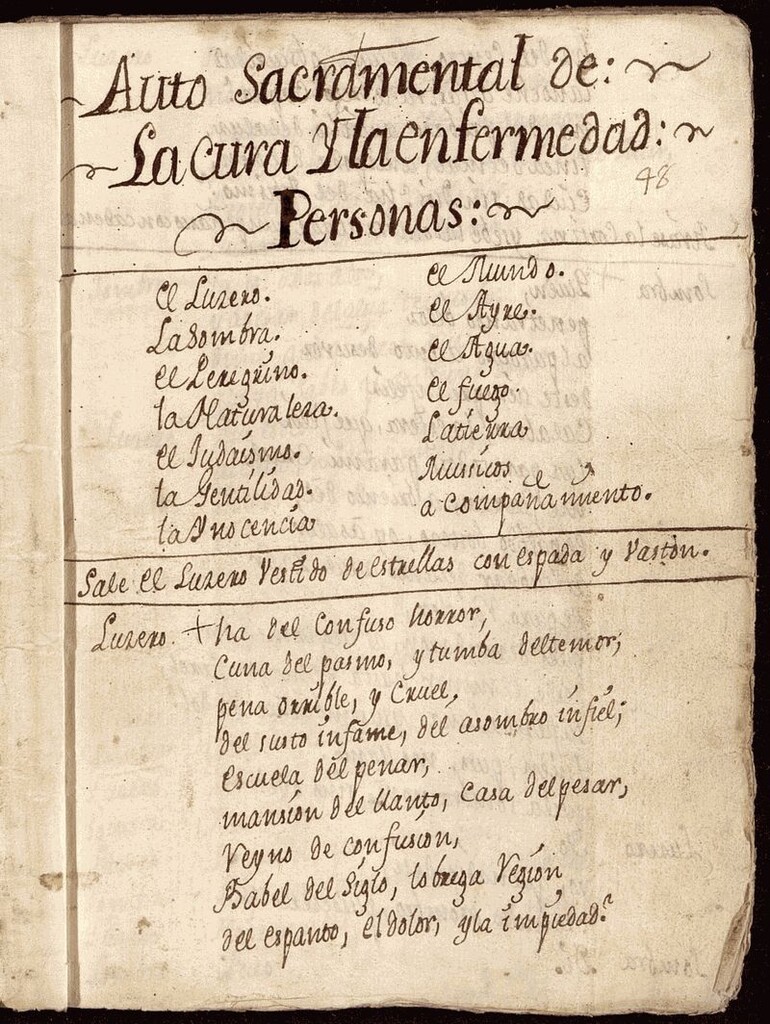 Auto Sacramental de:
La Cura Y la enfermedad:
48
Personas:
el Luzero.
La Sombra.
el Peregrino.
la Naturaleza.
el Judaísmo.
la Gentilidad.
la Ynocencia
el Mundo.
el Ayre.
el Agua.
el fuego.
La tierra
Musicos
acompañamiento.
Sale el Luzero Vestido de estrellas con espada y Vastón.
Luzero. + ha del Confuso horror,
Cuna del pasmo, y tumba del temor,
pena orrible, y Cruel,
del susto infame, del asombro infiel;
escuela del penar,
mansion del llanto, Casa del pesar,
Reyno de confusion,
Babel del Siglo, lobrega Region
del espanto, el dolor, y la impiedad?